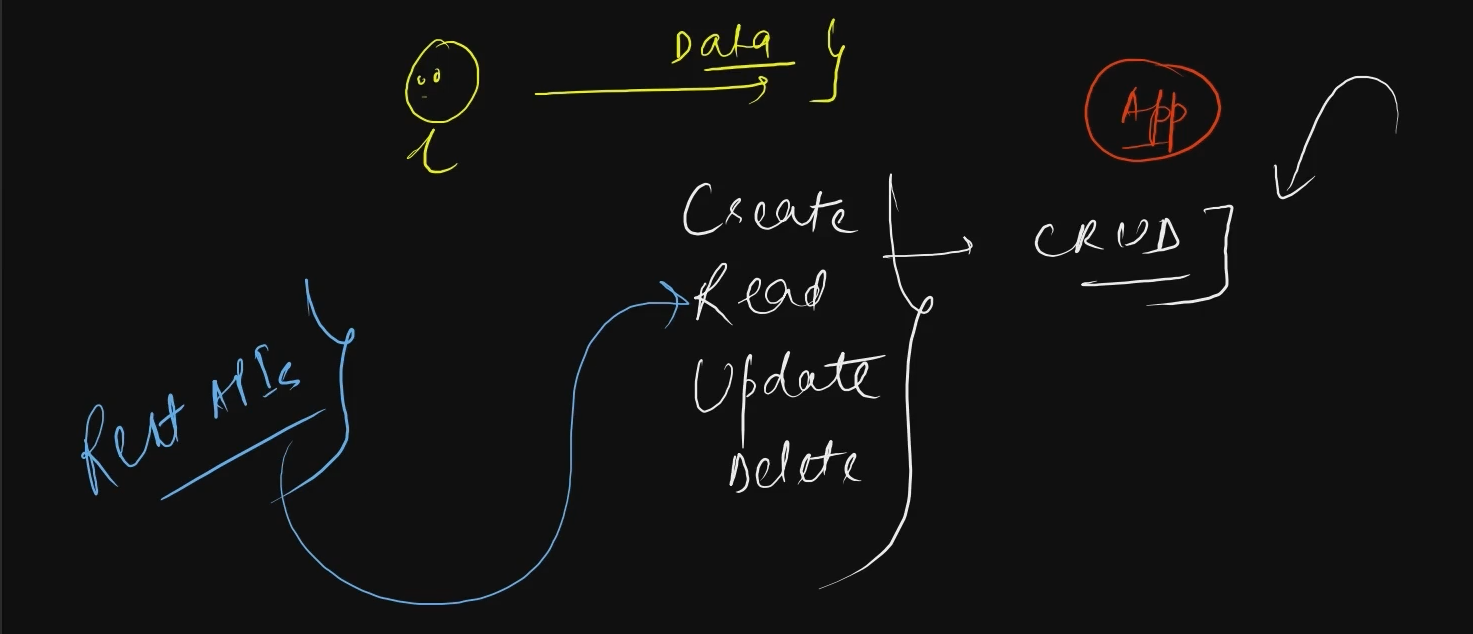 Data
App
Create
CRUD
Read
Update
Delete
Rest APIs